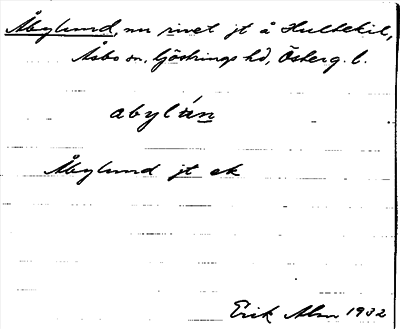 Åbylund, nu rivet jt å Hultekil,
Åsbo sn, Göstrings hd, Österg. l.
abylán
Åbylund jt ek
Erik Alm 1932